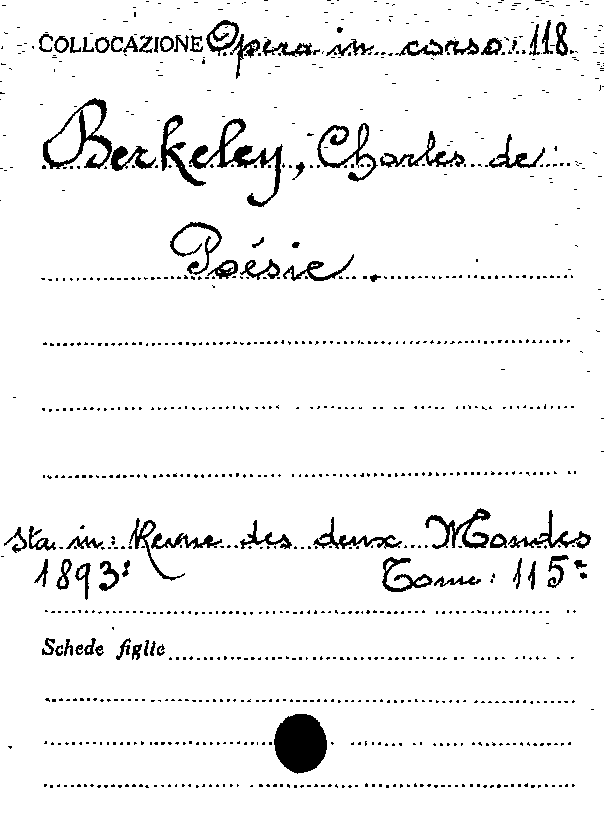 COLLOCAZIONE Opera in corso: 118
Berkeley, Charles de
Poésie.
sta in: Revue des deux Mondes
1893: Tome: 115=
Schede figlie